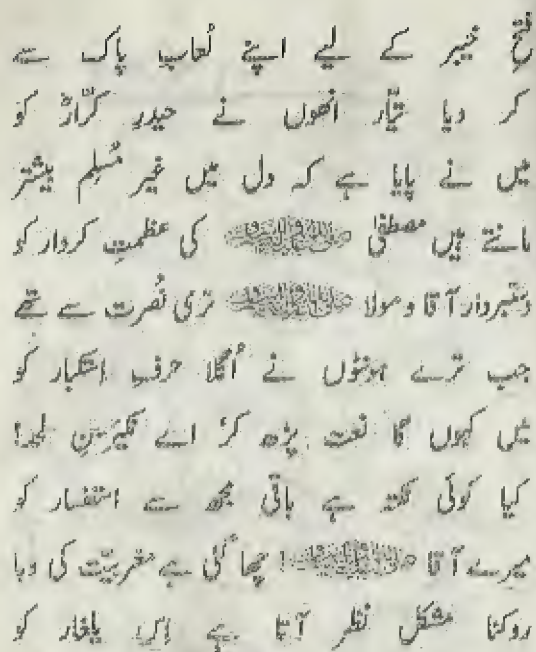 فتحِ خیبر کے لیے اپنے لُعابِ پاک سے
کر دیا تیّار انھوں نے حیدرِ کرّارؓ کو
میں نے پایا ہے کہ دل میں غیر مُسلِم بیشتر
مانتے ہیں مصطفیٰ ﷺ کی عظمتِ کردار کو
دستبردار آقا و مولا ﷺ تری نُصرت سے تھے
جب ترے ہونٹوں نے اُگلا حرفِ استکبار کو
میں کہوں گا نعت پڑھ کر اے نکیرینِ لحد!
کیا کوئی نکتہ ہے باقی مجھ سے استفسار کو
میرے آقا ﷺ! چھا گئی ہے مغربیّت کی وبا
روکنا مشکل نظر آتا ہے اِس یلغار کو